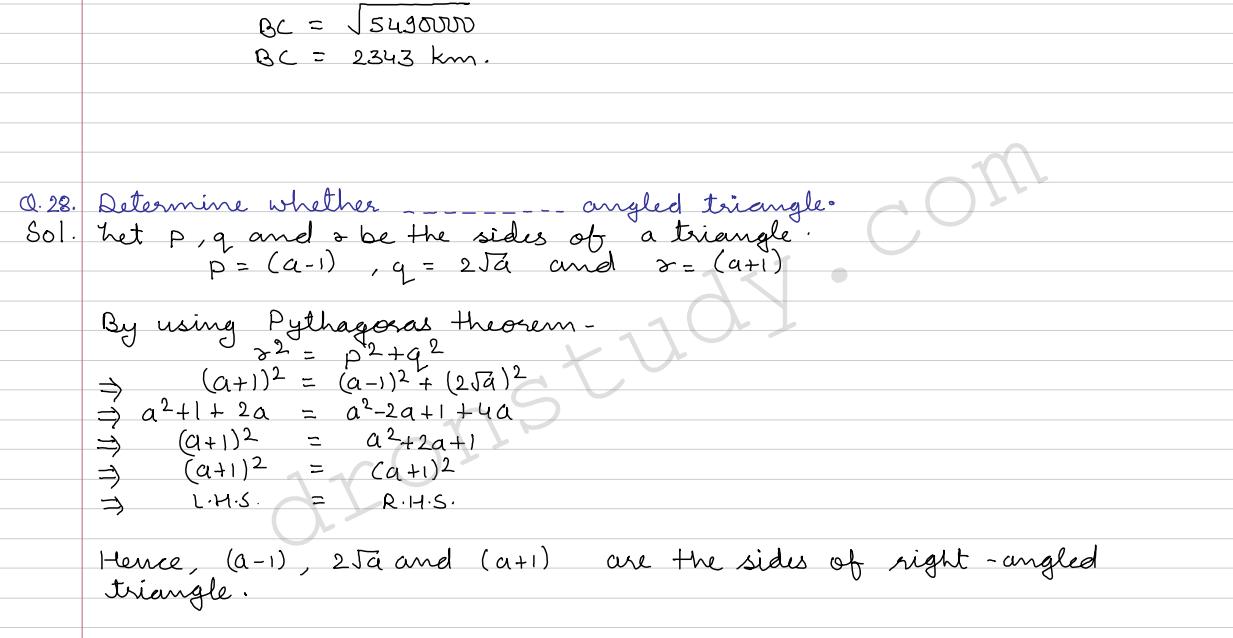 BC = √5490000
BC = 2343 km.
Q.28. Determine whether --------- angled triangle.
Sol. Let p, q and r be the sides of a triangle.
p = (a-1), q = 2√a and r = (a+1)
By using Pythagoras theorem-
r² = p²+q²
⇒ (a+1)² = (a-1)² + (2√a)²
⇒ a²+1+2a = a²-2a+1+4a
⇒ (a+1)² = a²+2a+1
⇒ (a+1)² = (a+1)²
⇒ L.H.S. = R.H.S.
Hence, (a-1), 2√a and (a+1) are the sides of right-angled
triangle.
dronstudy.com